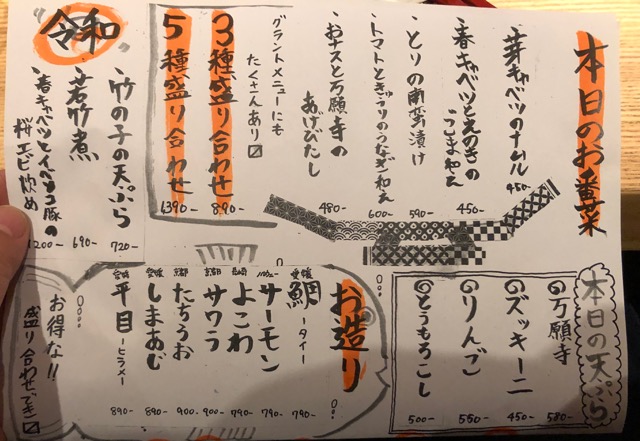 本日のお番菜
芽キャベツのナムル
450-
春キャベツとえのきの
ごまみそ和え
450-
とりの南蛮漬け
590-
トマトときゅうりのうなぎ和え
600-
おナスと万願寺の
あげびたし
480-
グランドメニューにも
たくさんあり〼
3種盛り合わせ
890-
5種盛り合わせ
1390-
"令和"
竹の子の天ぷら
720-
若竹煮
690-
春キャベツとイベリコ豚の
桜エビ炒め
1200-
本日の天ぷら
万願寺
580-
ズッキーニ
450-
りんご
550-
とうもろこし
500-
お造り
愛媛
鯛
ータイー
790-
ノルウェー
サーモン
790-
長崎
よこわ
790-
京都
サワラ
900-
京都
たちうお
900-
愛媛
しまあじ
890-
宮崎
平目
ーヒラメー
890-
お得な!!
盛り合わせでき〼